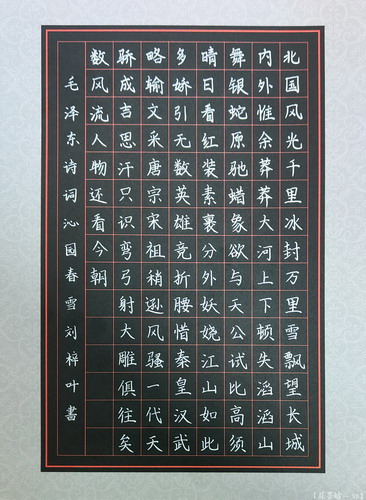 北国风光千里冰封万里雪飘望长城
内外惟余莽莽大河上下顿失滔滔山
舞银蛇原驰蜡象欲与天公试比高须
晴日看红装素裹分外妖娆江山如此
多娇引无数英雄竞折腰惜秦皇汉武
略输文采唐宗宋祖稍逊风骚一代天
骄成吉思汗只识弯弓射大雕俱往矣
数风流人物还看今朝
毛泽东诗词沁园春雪刘梓叶書